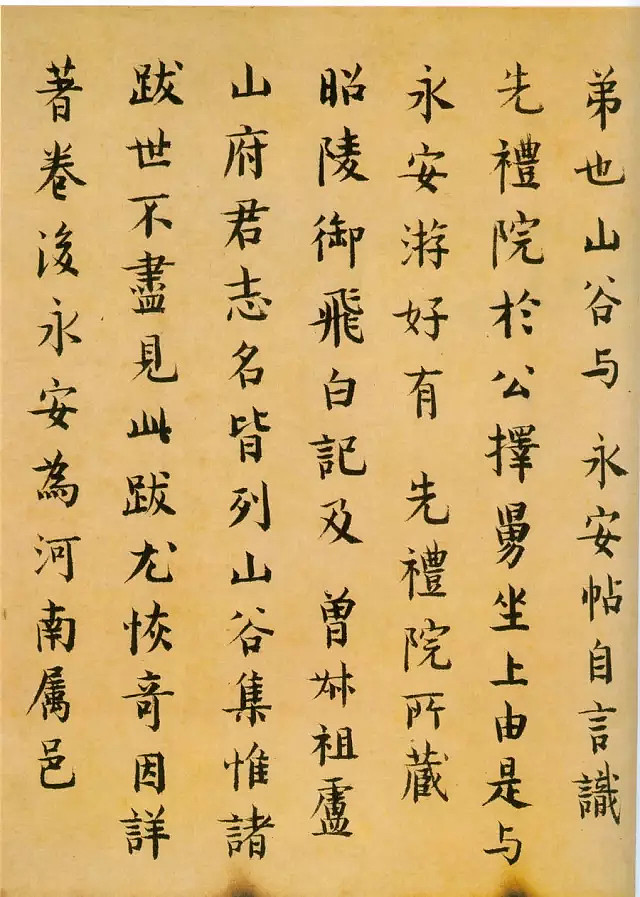 弟也山谷与 永安帖自言識
先禮院於公擇舅坐上由是与
永安游好有 先禮院所藏
昭陵御飛白記及 曾叔祖盧
山府君志名皆列山谷集惟諸
跋世不盡見此跋尤恢竒因詳
著卷後永安為河南属邑